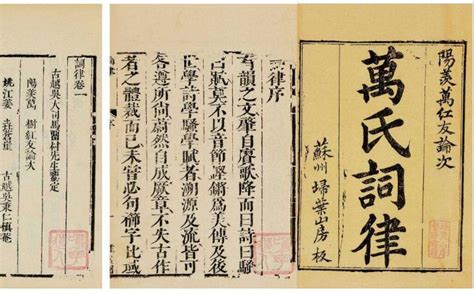 陽羨萬紅友論次
萬氏詞律
蘇州埽葉山房板
律序
有韻之文肇自賡歌降而曰詩曰騷
曰賦莫不以音節鏗鏘爲美傳及後
世學詩學騷學賦者溯源及流皆可
各遵所尚蔚然自成厥章不失古作
者之體裁而已未嘗必句櫛字比或
詞律卷一
古越吳大司馬留村先生鑒定
陽羨萬 樹紅友論次
姚江姜 垚蒼崖
古越吳秉仁慎菴